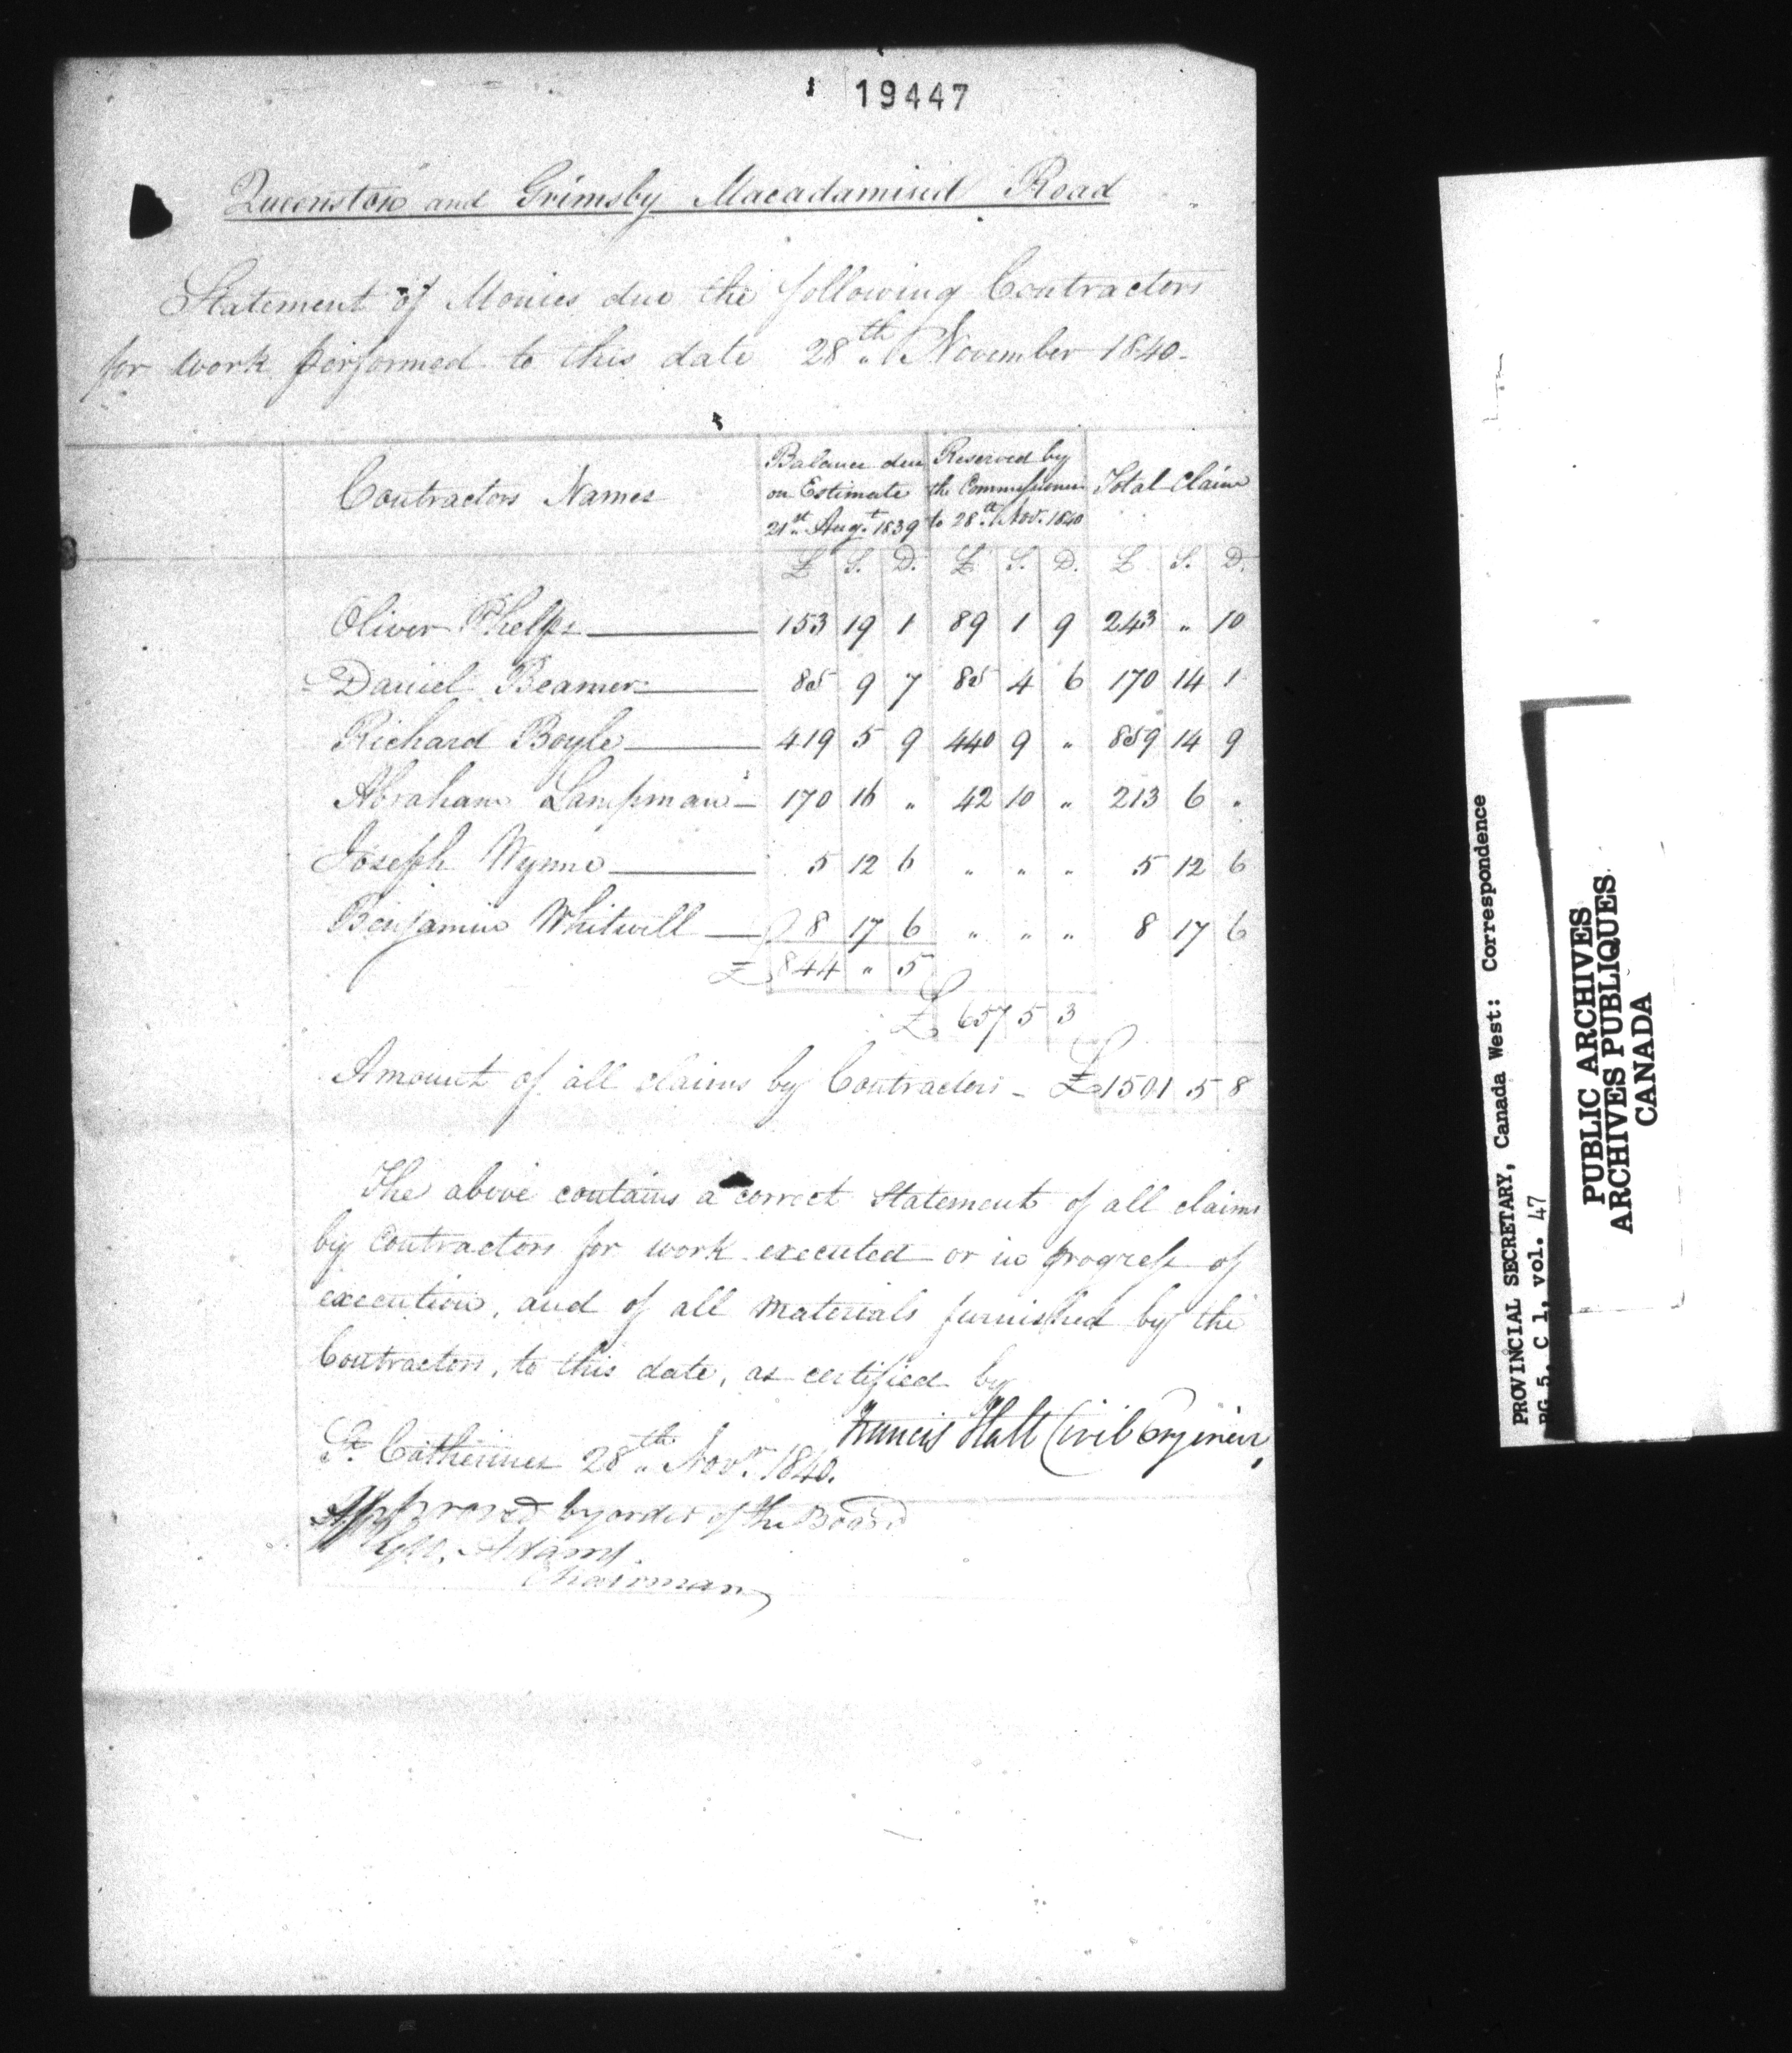 19447
Queenston and Grimsby Macadamised Road
Statement of Monies due the following Contractors
for work performed to this date 28th November 1840-
Contractors Names
Balance due on Estimate 21st Augt 1839
Reserved by the Commissioners to 28th Nov. 1840
Total Claim
£ S. D. £ S. D. £ S. D.
Oliver Phelps 153 19 1 89 1 9 243 " 10
Daniel Beamer 85 9 7 85 4 6 170 14 1
Richard Boyle 419 5 9 440 9 " 859 14 9
Abraham Lampman 170 16 " 42 10 " 213 6 "
Joseph Wynne 5 12 6 " " " 5 12 6
Benjamin Whitwell 8 17 6 " " " 8 17 6
£ 844 " 5
£ 657 5 3
Amount of all claims by Contractors - £1501 5 8
The above contains a correct Statement of all claims
by Contractors for work executed or in progress of
execution, and of all materials furnished by the
Contractors, to this date, as certified by
Francis Hall Civil Engineer,
St. Catherines 28th Novr. 1840.
Approved by order of the Board
Geo. Adams.
Chairman
PROVINCIAL SECRETARY, Canada West: Correspondence
RG 5, C 1, vol. 47
PUBLIC ARCHIVES
ARCHIVES PUBLIQUES
CANADA